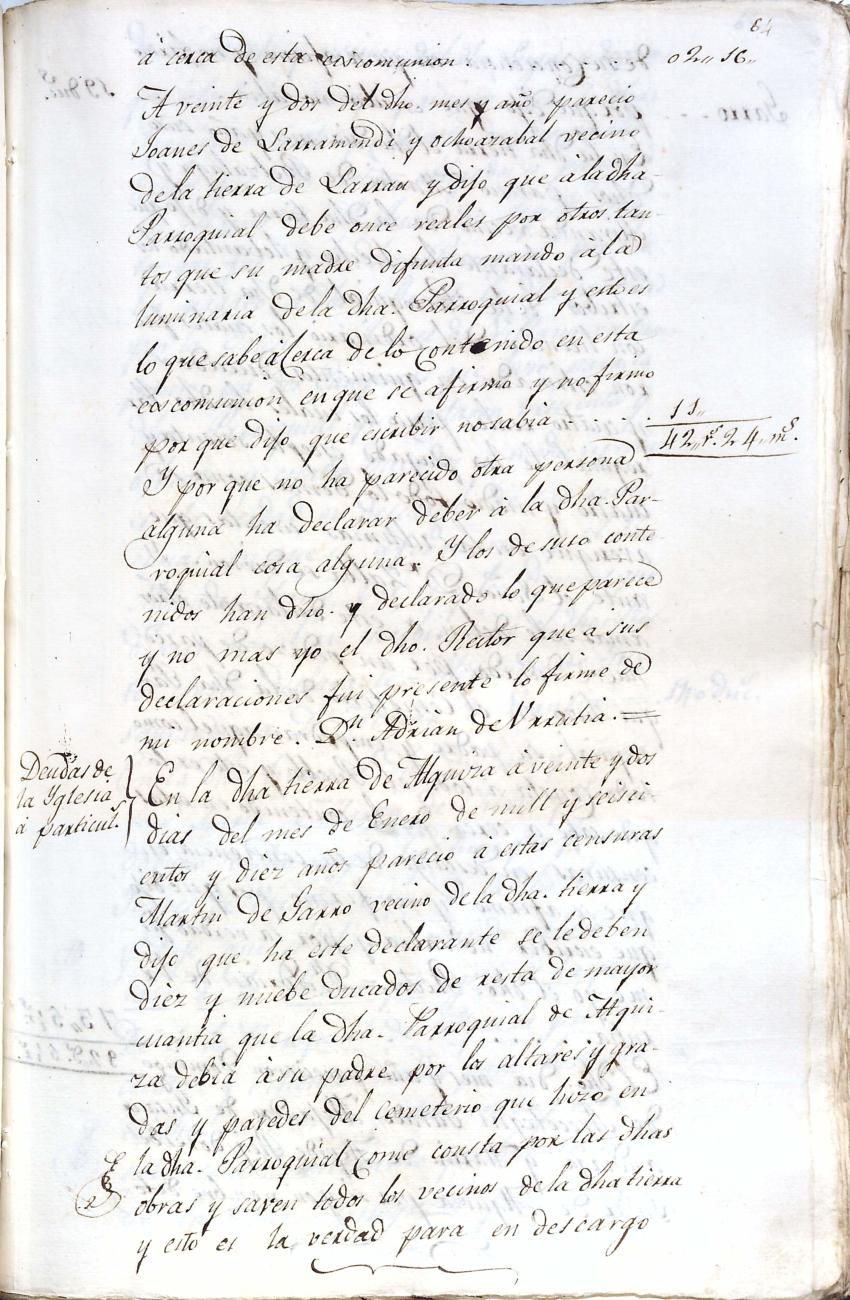 64
à cerca de esta excomunion 02,, 16,,
A veinte y dos del dho. mes y año pareciò
Joanes de Larramendi y ochoazabal vecino
de la tierra de Larrau y dijo que à la dha
Parroquial debe once reales por otros tan-
tos que su madre difunta mandò à la
luminaria de la dha. Parroquial y esto es
lo que sabe à cerca de lo contenido en esta
excomunion en que se afirmò y no firmò
por que dijo que escribir no sabia 11,,
42,, rs. 24,, ms.
Y por que no ha parecido otra persona
alguna ha declarar deber à la dha. Par-
roquial cosa alguna. Y los de suso conte
nidos han dho. y declarado lo que parece
y no mas yo el dho. Rector que a sus
declaraciones fui presente lo firme de
mi nombre. Dn. Adrian de Vrrutia. =
Deudas de
la Yglesia
à particuls.
En la dha tierra de Alquiza à veinte y dos
dias del mes de Enero de mill y seisci-
entos y diez años pareciò à estas censuras
Martin de Garro vecino de la dha. tierra y
dijo que ha este declarante se le deben
diez y nuebe ducados de resta de mayor
cuantia que la dha. Parroquial de Alqui-
za debia à su padre por los altares y gra-
das y paredes del Cemeterio que hizo en
la dha. Parroquial como consta por las dhas
obras y saven todos los vecinos de la dha tierra
y esto es la verdad para en descargo